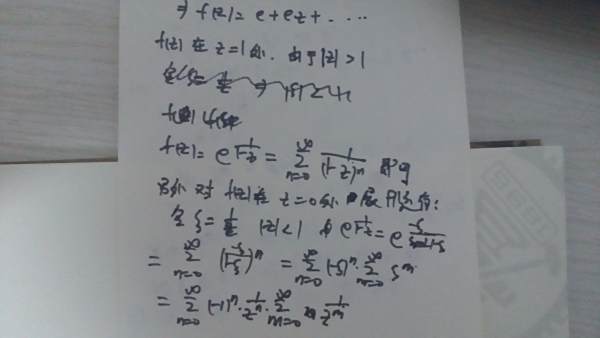 ⇒ f(z) = e + ez + ....
f(z) 在 z=1 处. 由于 |z| > 1
令 ζ = 1/z ⇒ |ζ| < 1
f(z) = e^{1/(1-z)} = \sum_{n=0}^{∞} 1/(1-z)^n 即可
另外 对 f(z) 在 z=0处 展开
令 ζ = 1/z |z|<1 e^{1/(1-z)} = e
= \sum_{n=0}^{∞} (-ζ/(1-ζ))^n = \sum_{n=0}^{∞} (-ζ)^n \sum_{n=0}^{∞} ζ^m
= \sum_{n=0}^{∞} (-1)^n · 1/z^n · \sum_{m=0}^{∞} 1/z^m